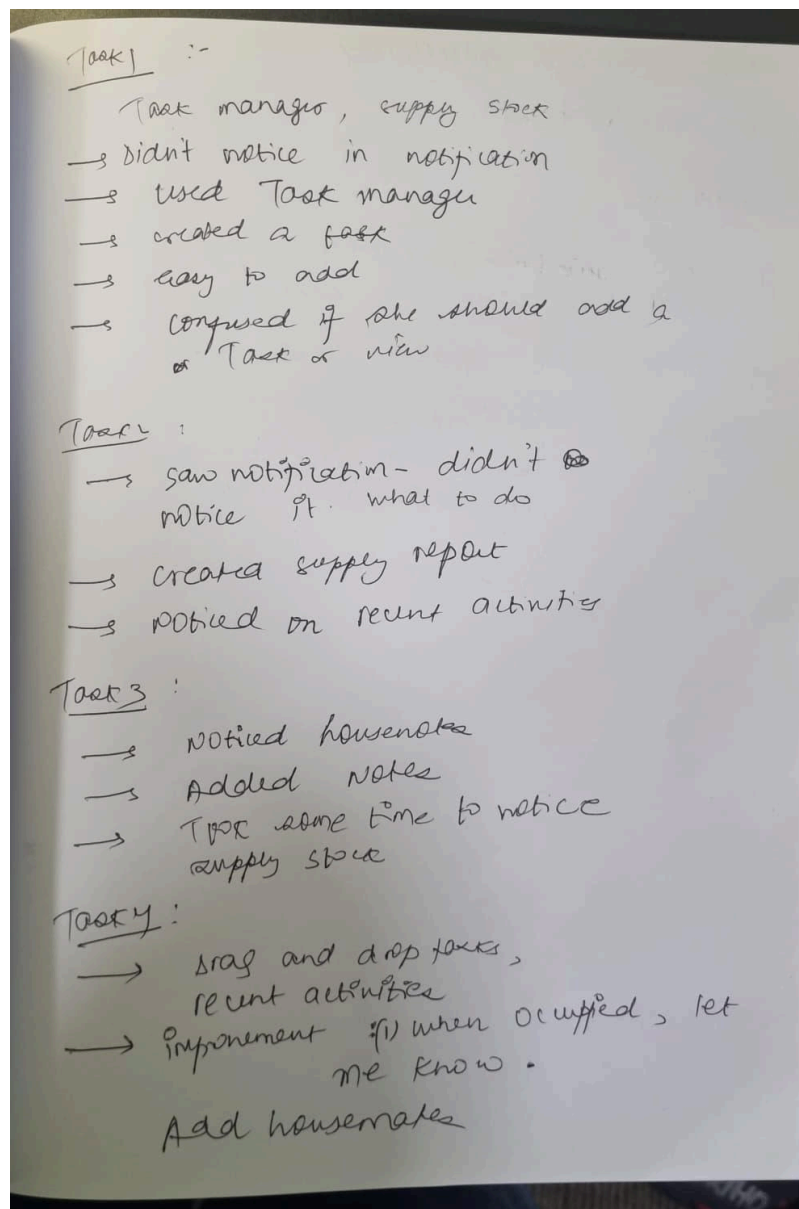 Task 1 :-
Task manager, supply stock
→ Didn't notice in notification
→ used Task manager
→ created a task
→ easy to add
→ confused if she should add a
Task or view
Task 2 :
→ saw notification - didn't
notice it. what to do
→ created supply report
→ Noticed on recent activities
Task 3 :
→ Noticed housenotes
→ Added Notes
→ Took some time to notice
supply stock
Task 4 :
→ Drag and drop tasks,
recent activities
→ improvement :(1) when occupied, let
me know.
Add housemates